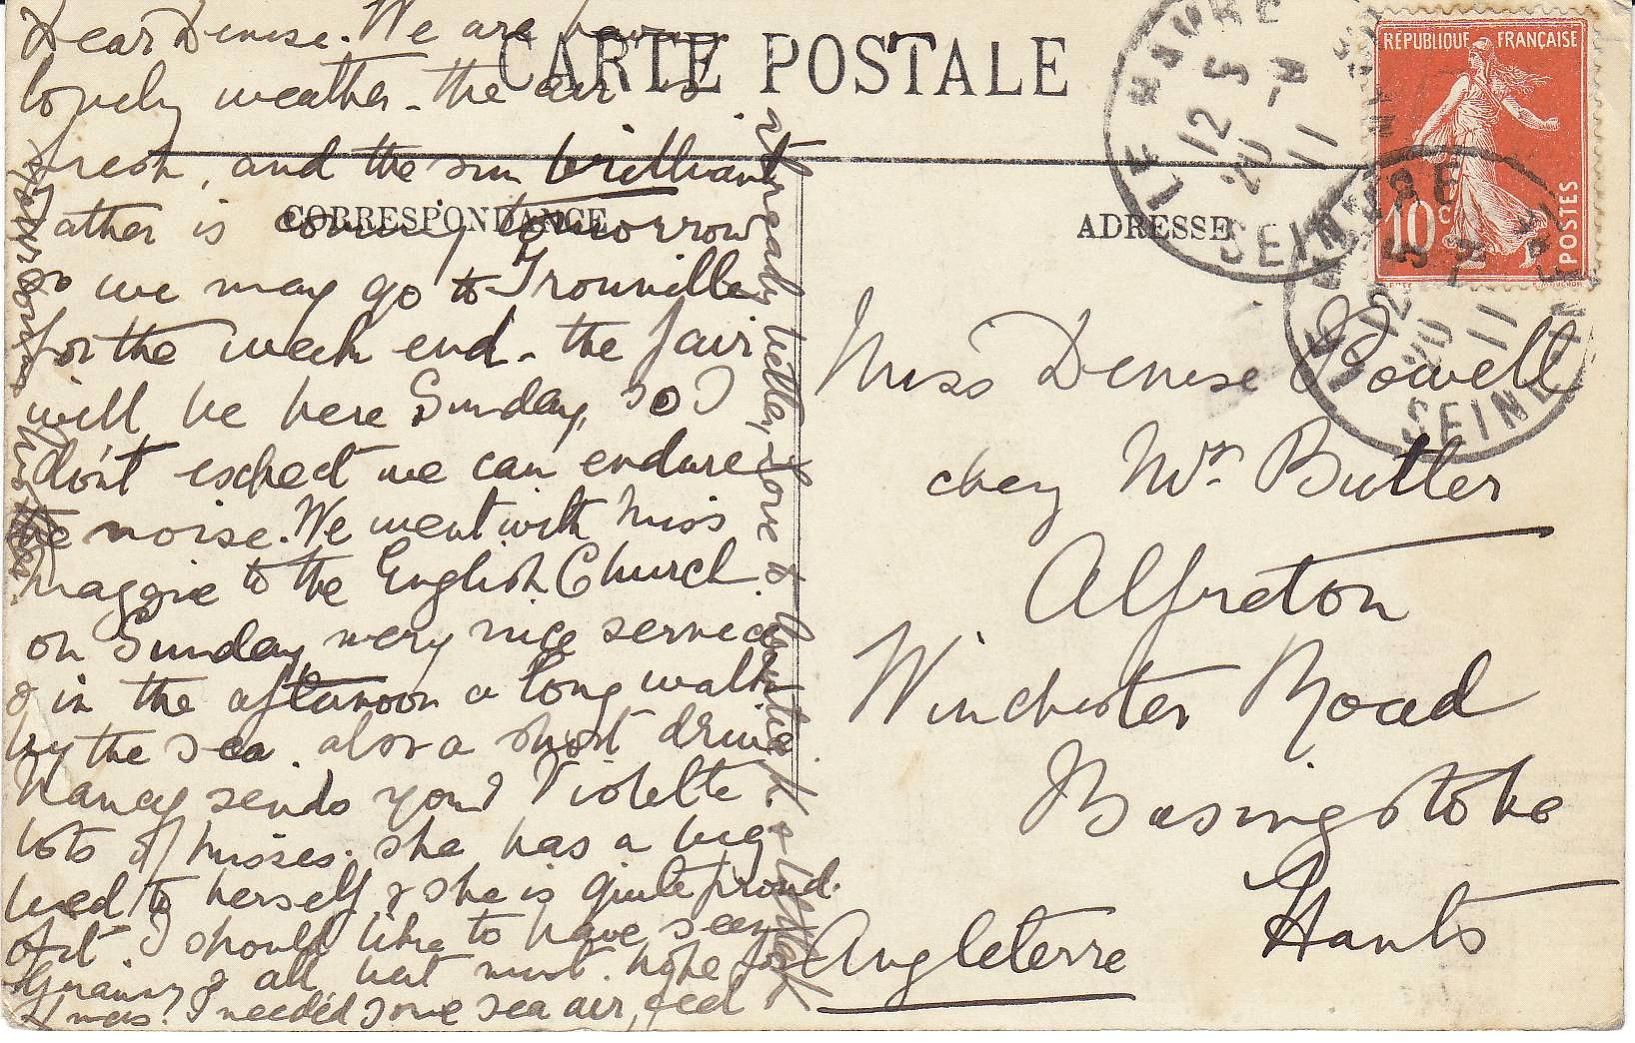 CARTE POSTALE
CORRESPONDANCE
ADRESSE
Dear Denise. We are having
lovely weather - the air is
fresh, and the sun brilliant
Father is coming tomorrow
so we may go to Trouville
for the week end - the fair
will be here Sunday, so I
don't expect we can endure
the noise. We went with Miss
Maggie to the English Church
on Sunday, very nice service
& in the afternoon a long walk
by the sea. also a short drive
Nancy sends you & Violette
lots of kisses. she has a big
bed to herself & she is quite proud
of it. I should like to have seen
Granny & all but must hope for
Xmas. I needed some sea air, feel
already better, Love to
Miss Denise Powell
chez Mrs. Butler
Alfreton
Winchester Road
Basingstoke
Hants
Angleterre
RÉPUBLIQUE FRANÇAISE
10c
POSTES
LE HAVRE
12 5
20 -4
11
SEINE
LE HAVRE
12
20
11
SEINE